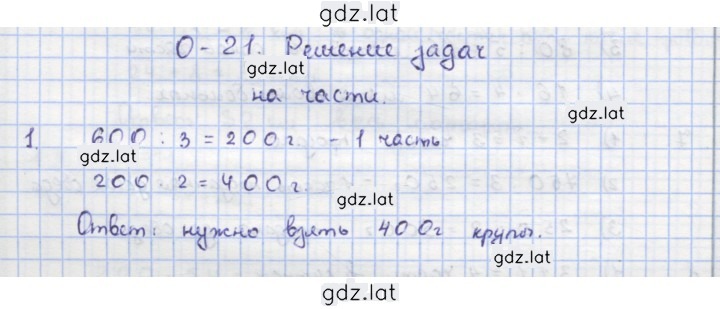 gdz.lat
О-21. Решение задач
gdz.lat
на части.
gdz.lat
1. 600 : 3 = 200 г. - 1 часть
gdz.lat
200 · 2 = 400 г.
gdz.lat
Ответ: нужно взять 400г крупы.
gdz.lat
gdz.lat